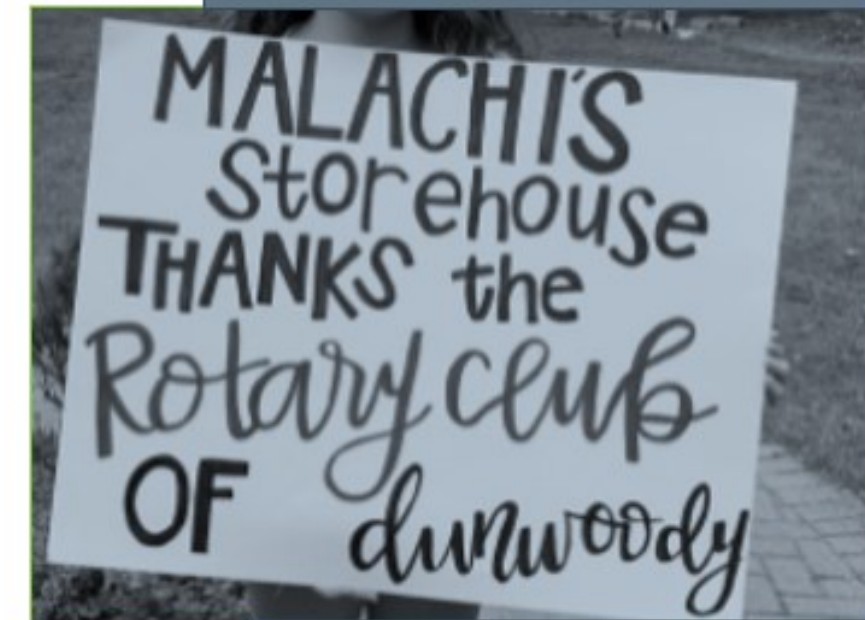 MALACHI'S
Storehouse
THANKS the
Rotary club
OF dunwoody